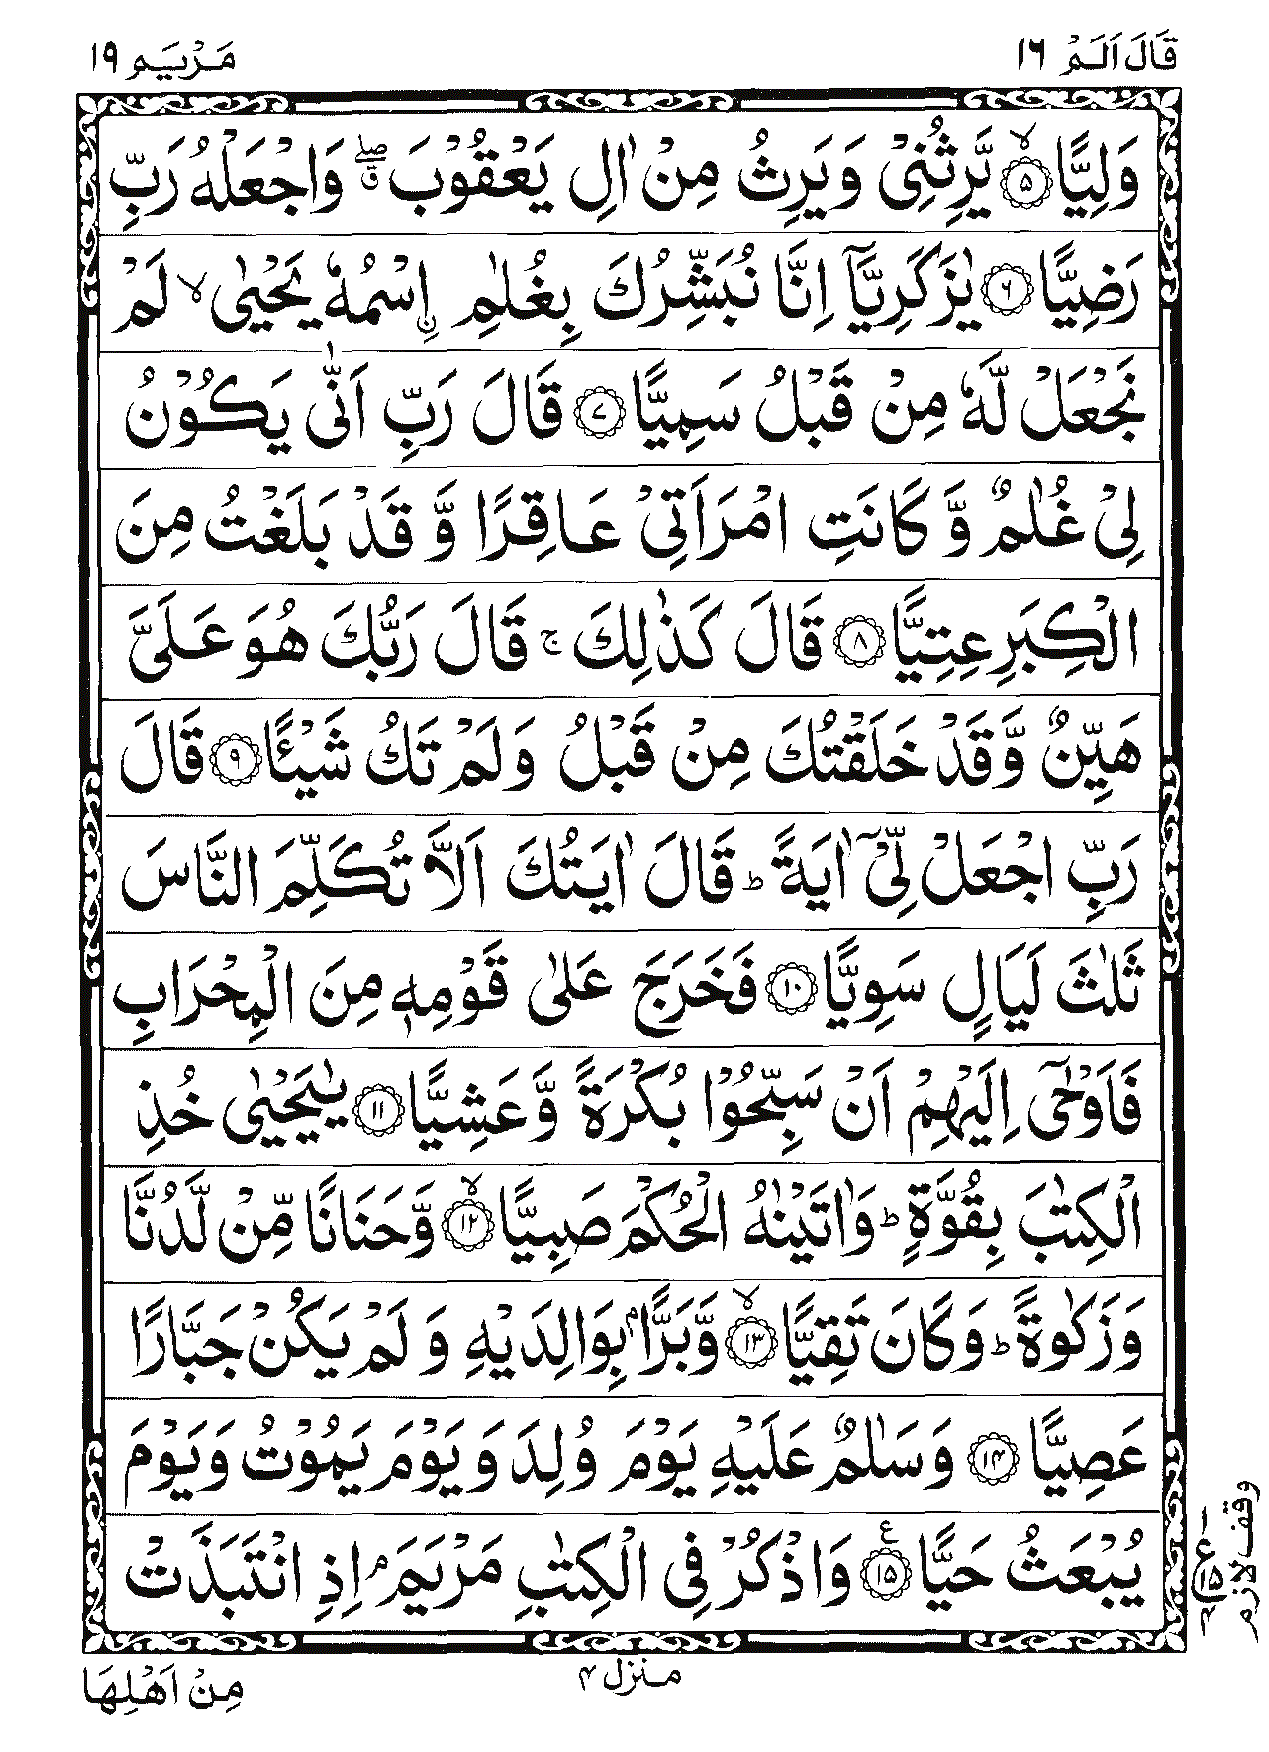 قَالَ اَلَمْ ١٦
مَرْيَم ١٩
وَلِيًّا ۙ﴿۵﴾ يَّرِثُنِيْ وَيَرِثُ مِنْ اٰلِ يَعْقُوْبَ ۖۗ وَاجْعَلْهُ رَبِّ
رَضِيًّا ﴿۶﴾ يٰزَكَرِيَّآ اِنَّا نُبَشِّرُكَ بِغُلٰمِ ِ۟اسْمُهٗ يَحْيٰى ۙ لَمْ
نَجْعَلْ لَّهٗ مِنْ قَبْلُ سَمِيًّا ﴿۷﴾ قَالَ رَبِّ اَنّٰى يَكُوْنُ
لِيْ غُلٰمٌ وَّ كَانَتِ امْرَاَتِيْ عَاقِرًا وَّ قَدْ بَلَغْتُ مِنَ
الْكِبَرِ عِتِيًّا ﴿۸﴾ قَالَ كَذٰلِكَ ۚ قَالَ رَبُّكَ هُوَ عَلَيَّ
هَيِّنٌ وَّقَدْ خَلَقْتُكَ مِنْ قَبْلُ وَلَمْ تَكُ شَيْـًٔا ﴿۹﴾ قَالَ
رَبِّ اجْعَلْ لِّيْٓ اٰيَةً ؕ قَالَ اٰيَتُكَ اَلَّا تُكَلِّمَ النَّاسَ
ثَلٰثَ لَيَالٍ سَوِيًّا ﴿۱۰﴾ فَخَرَجَ عَلٰى قَوْمِهٖ مِنَ الْمِحْرَابِ
فَاَوْحٰٓى اِلَيْهِمْ اَنْ سَبِّحُوْا بُكْرَةً وَّعَشِيًّا ﴿۱۱﴾ يٰيَحْيٰى خُذِ
الْكِتٰبَ بِقُوَّةٍ ؕ وَاٰتَيْنٰهُ الْحُكْمَ صَبِيًّا ۙ﴿۱۲﴾ وَّحَنَانًا مِّنْ لَّدُنَّا
وَزَكٰوةً ؕ وَكَانَ تَقِيًّا ۙ﴿۱۳﴾ وَّبَرًّاۢ بِوَالِدَيْهِ وَ لَمْ يَكُنْ جَبَّارًا
عَصِيًّا ﴿۱۴﴾ وَسَلٰمٌ عَلَيْهِ يَوْمَ وُلِدَ وَ يَوْمَ يَمُوْتُ وَيَوْمَ
يُبْعَثُ حَيًّا ﴿۱۵﴾ ع وَاذْكُرْ فِي الْكِتٰبِ مَرْيَمَ ۘ اِذِ انْتَبَذَتْ
ع ١٥ ۴
وقف لازم
منزل ۴
مِنْ اَهْلِهَا